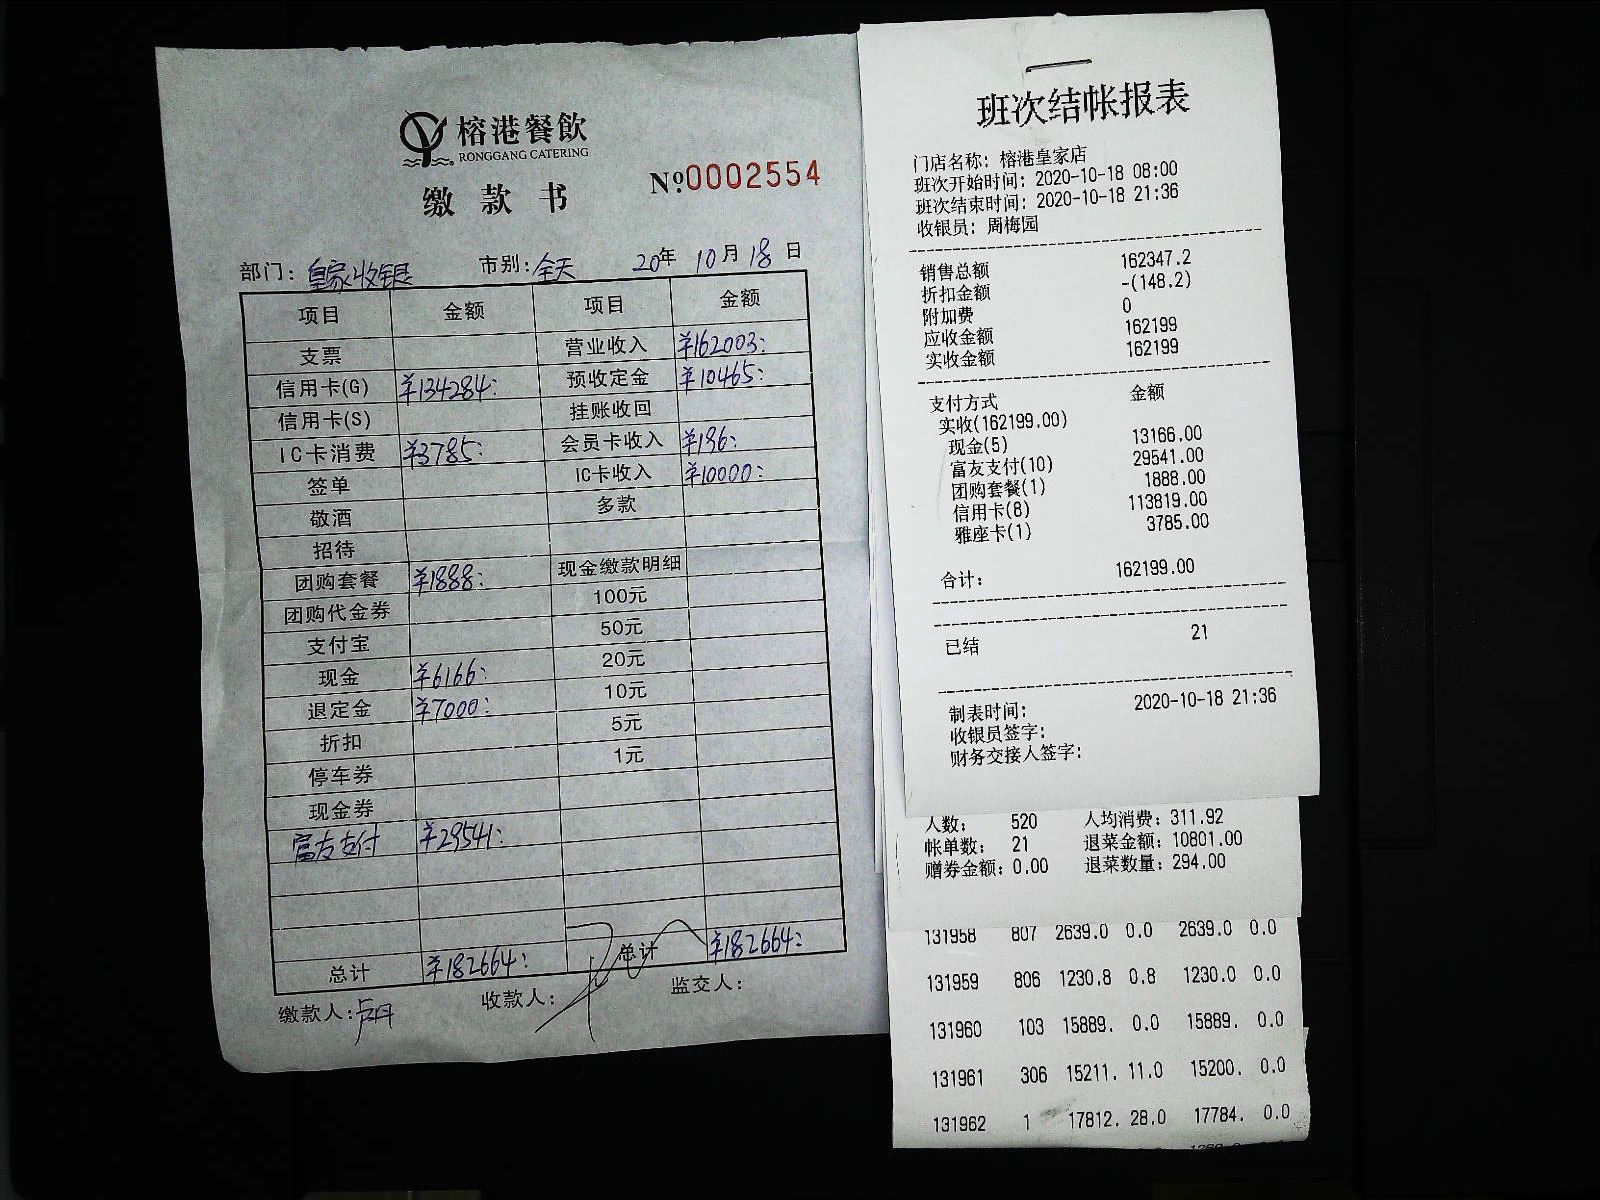 榕港餐飲
RONGGANG CATERING
缴款书
№0002554
部门：皇家收银 市别：全天 20年 10月 18日
项目 金额 项目 金额
支票 营业收入 ¥162003:
信用卡(G) ¥134284: 预收定金 ¥10465:
信用卡(S) 挂账收回
IC卡消费 ¥3785: 会员卡收入 ¥196:
签单 IC卡收入 ¥10000:
敬酒 多款
招待
团购套餐 ¥1888: 现金缴款明细
团购代金券 100元
支付宝 50元
现金 ¥6166: 20元
退定金 ¥7000: 10元
折扣 5元
停车券 1元
现金券
富友支付 ¥29541:
总计 ¥182664: 总计 ¥182664:
缴款人： 收款人： 监交人：
班次结帐报表
门店名称：榕港皇家店
班次开始时间：2020-10-18 08:00
班次结束时间：2020-10-18 21:36
收银员：周梅园
销售总额 162347.2
折扣金额 -(148.2)
附加费 0
应收金额 162199
实收金额 162199
支付方式 金额
实收(162199.00)
现金(5) 13166.00
富友支付(10) 29541.00
团购套餐(1) 1888.00
信用卡(8) 113819.00
雅座卡(1) 3785.00
合计： 162199.00
已结 21
制表时间： 2020-10-18 21:36
收银员签字：
财务交接人签字：
人数： 520 人均消费：311.92
帐单数： 21 退菜金额：10801.00
赠券金额：0.00 退菜数量：294.00
131958 807 2639.0 0.0 2639.0 0.0
131959 806 1230.8 0.8 1230.0 0.0
131960 103 15889. 0.0 15889. 0.0
131961 306 15211. 11.0 15200. 0.0
131962 1 17812. 28.0 17784. 0.0